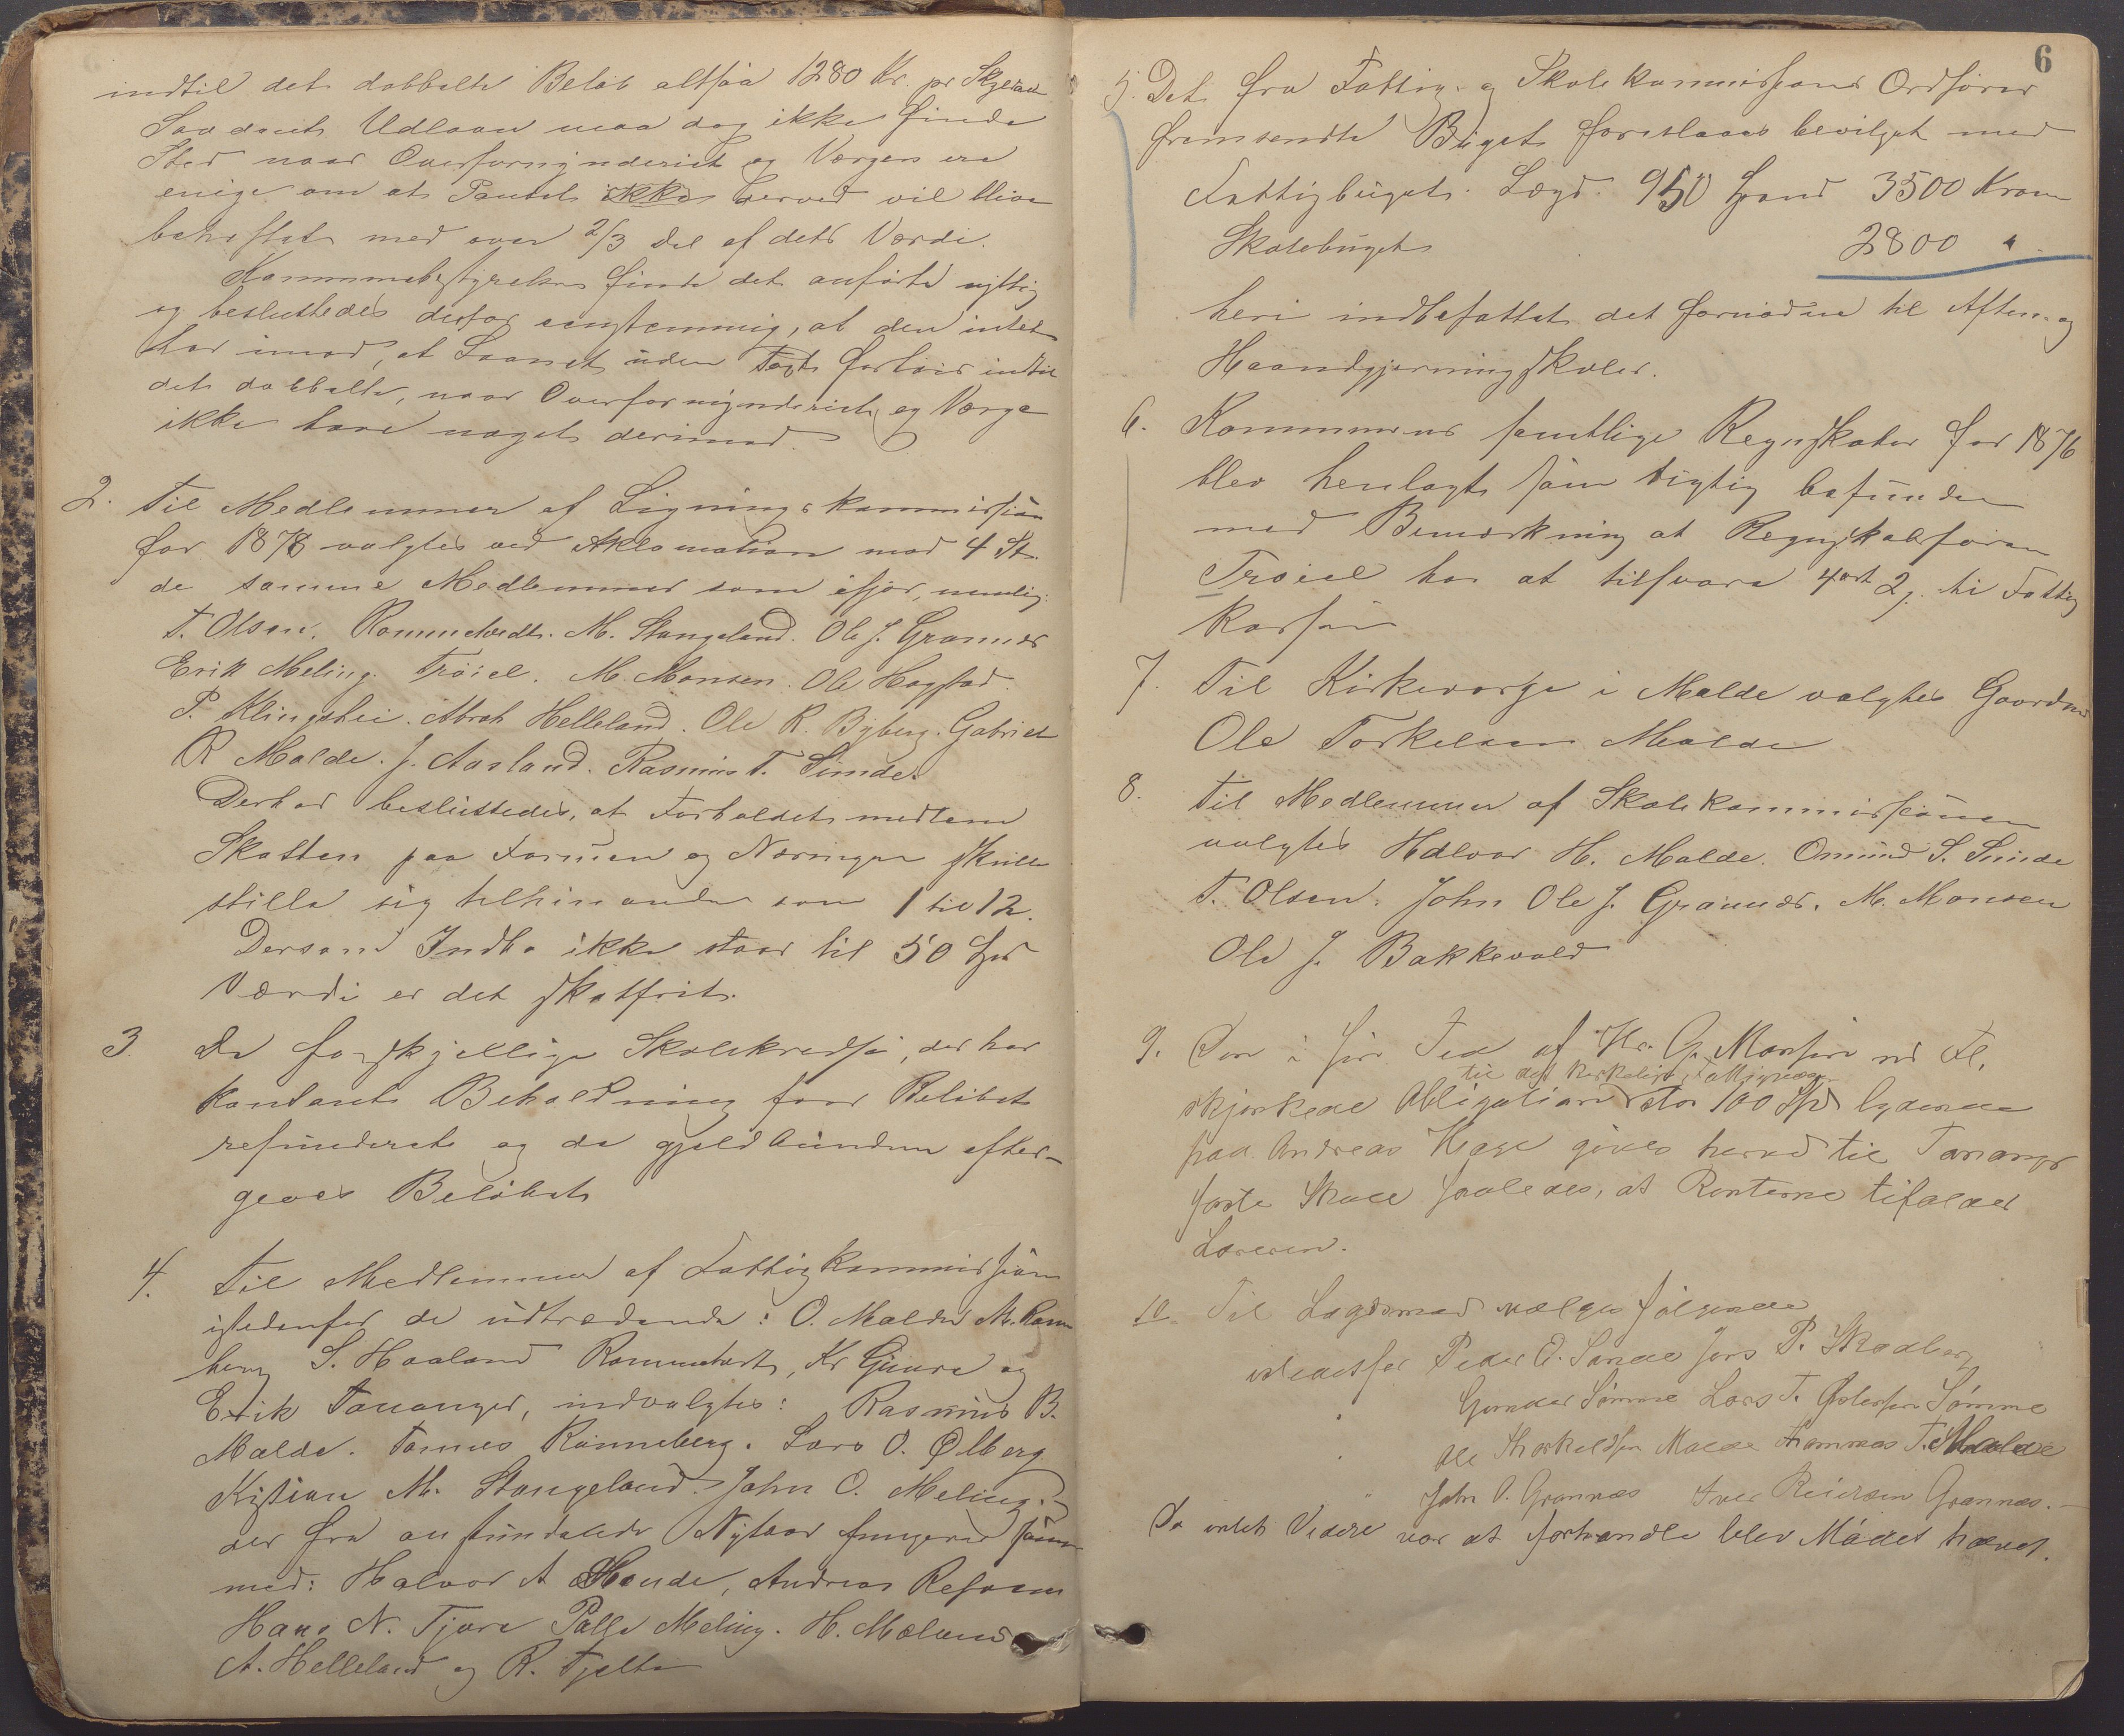 indtil det dobbelte Beløb altsaa 1280 Kr. pr Skylden
Saadant Udlaan maa dog ikke finde
Sted naar Overformynderiet og Værgen ere
enige om at Pantet ikke derved vil blive
beheftet med over 2/3 Del af dets Værdi.
Kommunebestyrelsen finde det anførte nyttig
og besluttedes derfor eenstemmig, at den intet
har imod, at Laanet uden Taxt forhøies indtil
det dobbelte, naar Overformynderiet og Værge
ikke have noget derimod.
2. Til Medlemmer af Ligningskommissionen
for 1878 valgtes ved Aklamation mod 4 St.
de samme Medlemmer som ifjor, nemlig:
T. Olsen. Rommetvedt. M. Stangeland. Ole J. Grannes
Erik Meling. Trøiel. M. Monsen. Ole Hogstad.
P. Klingshei. Abrah Helleland. Ole R. Byberg. Gabriel
R Malde. J. Aasland. Rasmus T. Sunde.
Derhos besluttedes, at Forholdet mellem
Skatten paa Formuen og Næringen skulle
stille sig tilhinanden som 1 til 12.
Dersom Indbo ikke staar til 50 Spd
Værdi er det skatfrit.
3. De forskjellige Skolekredse, der har
kontant Beholdning faar Beløbet
refunderet og de gjeldbundne efter-
gives Beløbet
4. Til Medlemmer af Fattigkommissionen
istedenfor de udtrædende: O. Malde M. Ranne
berg S. Haaland Rommetvedt, Kr Gimre og
Erik Tananger, indvalgtes: Rasmus B.
Malde. Tønnes Ranneberg. Lars O. Ølberg
Kistian M. Stangeland. John O. Meling.
der fra anstundende Nytaar fungerer sam
med: Halvor A Hende, Andreas
Hans N. Tjora Palle Meling. H. Mæland
A. Helleland og R. Tjelta
6
5. Det fra Fattig- og Skolekommissionens Ordfører
fremsendte Buget foreslaaes bevilget med
Fattigbuget. Lægd. 950 Spand 3500 Kroner
Skolebuget 2800 "
heri indbefattet det fornødne til Aften- og
Haandgjerningsskoler.
6. Kommunens samtlige Regnskaber for 1876
blev henlagt som rigtig befunden
med Bemærkning at Regnskabsføren
Trøiel har at tilsvare 4 ort 2 s. til Fattig
kassen
7. Til Kirkeværge i Malde valgtes Gaardm.
Ole Torkelsen Malde
8. Til Medlemmer af Skolekommissionen
valgtes Halvor H. Malde. Omund S. Sunde
T. Olsen. John Ole J. Grannes. M. Monsen
Ole J. Bakkevold
9. Den i sin Tid af Hr. G. Monsen
til det kirkelige Fattigvæsen
skjenkede Obligation stor 100 Spd lydende
paa Andreas gives herved til Tananger
faste Skole saaledes, at Renterne tilfalder
Læreren.
10. Til Lægdsmænd vælges følgende
istedetfor Peder O. Sande Jens P. Skadberg
" Gunder Sømme Lars T. Sømme
" Ole Thorkelsen Malde Thomas T. Malde
" John O. Grannæs Iver Reiersen Grannæs.
Da intet Videre var at forhandle blev Mødet hævet.